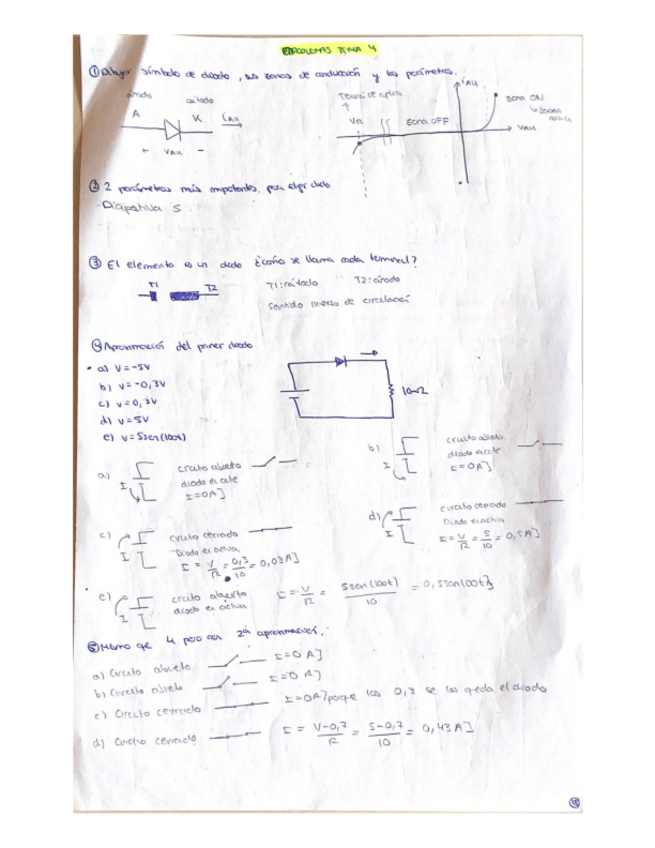 PROBLEMAS TEMA 4
① Dibujar símbolo de diodo, sus zonas de conducción y los parámetros.
ánodo
cátodo
A
K
iAK
+ VAK -
Tensión de ruptura
VR
Zona OFF
iAK
Zona ON
VAK
② 2 parámetros más importantes para elegir diodo
- Diapositiva 5
③ El elemento es un diodo ¿cómo se llama cada terminal?
T1
T2
T1: cátodo
T2: ánodo
Sentido inverso de circulación
④ Aproximación del primer diodo
a) V = -5V
b) V = -0,3V
c) V = 0,3V
d) V = 5V
e) V = 5sen(100t)
10Ω
a)
I
circuito abierto
diodo en corte
I = 0A]
b)
I
circuito abierto
diodo en corte
I = 0A]
c)
I
circuito cerrado
Diodo en activa
I = V/R = 0,3/10 = 0,03A]
d)
I
circuito cerrado
Diodo en activa
I = V/R = 5/10 = 0,5A]
e)
I
circuito abierto
diodo en activa
I = V/R = 5sen(100t)/10 = 0,5sen(100t)]
⑤ Mismo que 4 pero con 2ª aproximación.
a) Circuito abierto
I = 0 A]
b) Circuito abierto
I = 0 A]
c) Circuito cerrado
I = 0A] porque los 0,3 se los queda el diodo
d) Circuito cerrado
I = V-0,7/R = 5-0,7/10 = 0,43A]